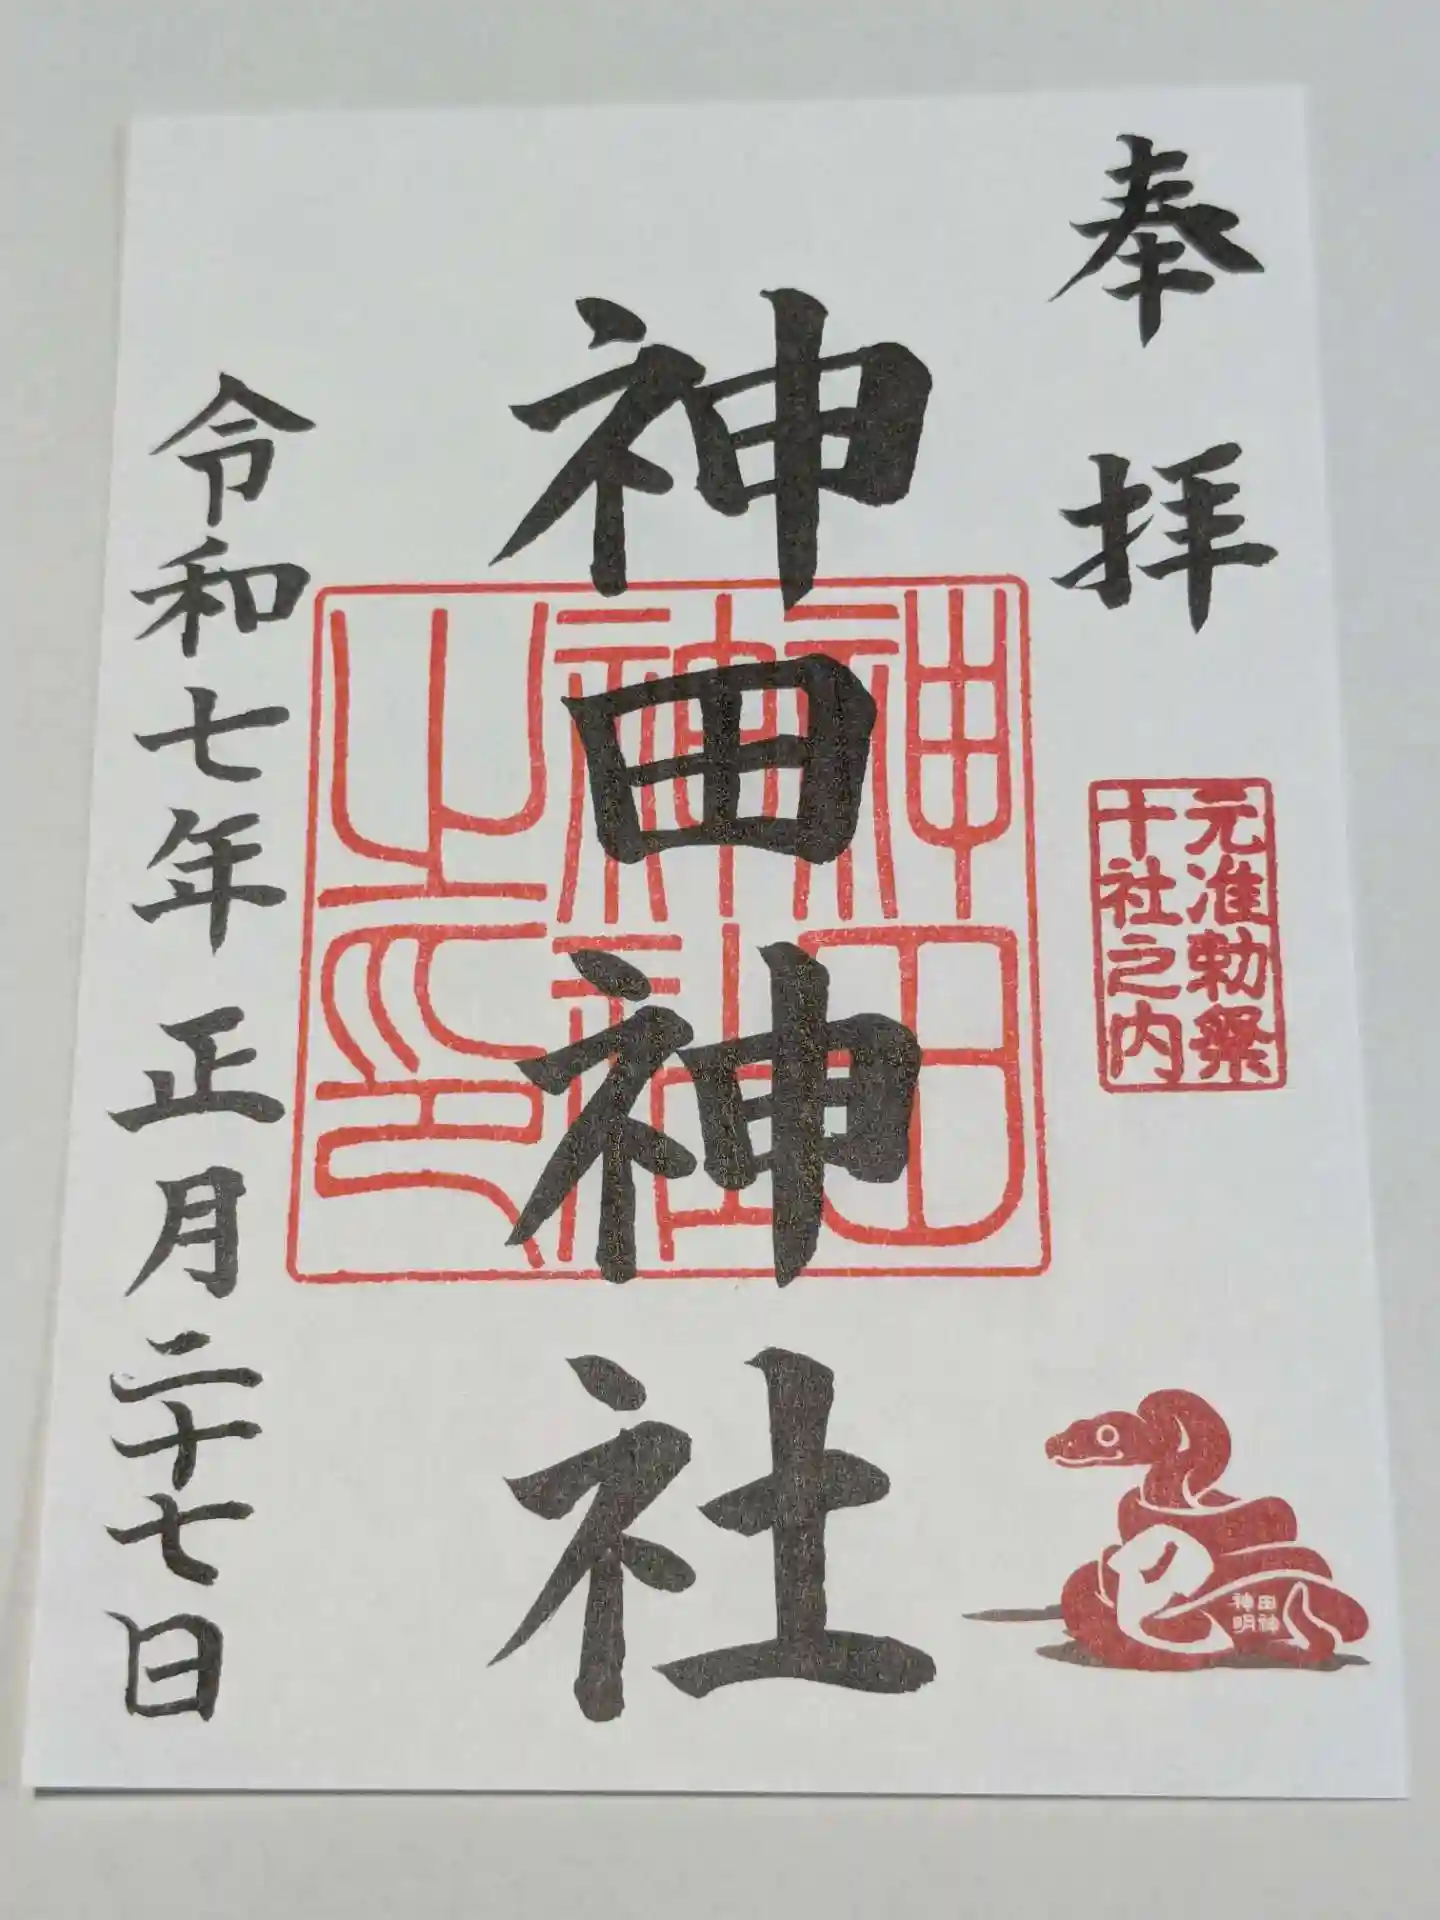 奉拝
元准勅祭
十社之内
巳
田神
神明
神田神社
神田
神社
之印
令和七年正月二十七日